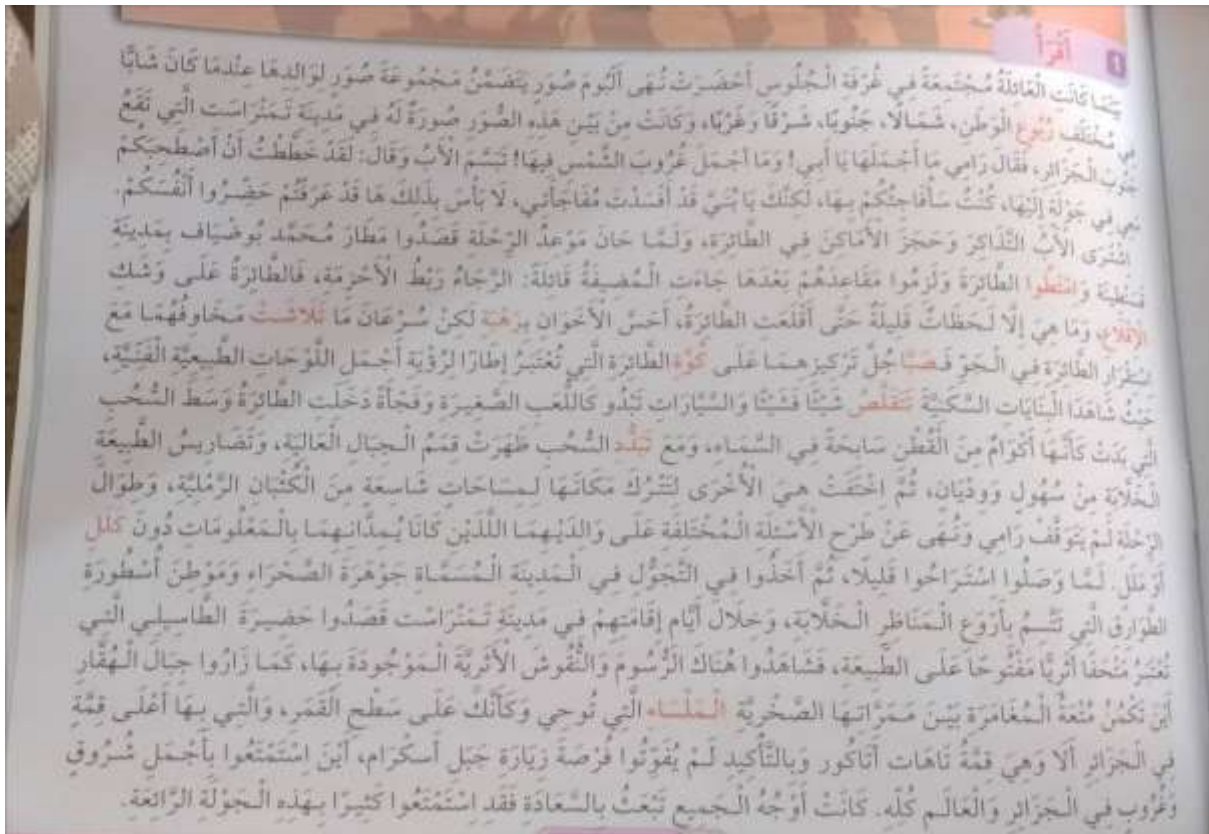 أَقْرَأُ
بَيْنَمَا كَانَتِ الْعَائِلَةُ مُجْتَمِعَةً فِي غُرْفَةِ الْجُلُوسِ أَحْضَرَتْ نُهَى أَلْبُومَ صُوَرٍ يَتَضَمَّنُ مَجْمُوعَةَ صُوَرٍ لِوَالِدِهَا عِنْدَمَا كَانَ شَابًّا
فِي مُخْتَلِفِ رُبُوعِ الْوَطَنِ، شَمَالًا، جَنُوبًا، شَرْقًا وَغَرْبًا، وَكَانَتْ مِنْ بَيْنِ هَذِهِ الصُّوَرِ صُورَةٌ لَهُ فِي مَدِينَةِ تَمَنْرَاسَت الَّتِي تَقَعُ
جَنُوبَ الْجَزَائِرِ، فَقَالَ رَامِي مَا أَجْمَلَهَا يَا أَبِي! وَمَا أَجْمَلَ غُرُوبَ الشَّمْسِ فِيهَا! تَبَسَّمَ الْأَبُ وَقَالَ: لَقَدْ خَطَّطْتُ أَنْ أَصْطَحِبَكُمْ
مَعِي فِي جَوْلَةٍ إِلَيْهَا، كُنْتُ سَأُفَاجِئُكُمْ بِهَا، لَكِنَّكَ يَا بُنَيَّ قَدْ أَفْسَدْتَ مُفَاجَأَتِي، لَا بَأْسَ بِذَلِكَ هَا قَدْ عَرَفْتُمْ حَضِّرُوا أَنْفُسَكُمْ.
اشْتَرَى الْأَبُ التَّذَاكِرَ وَحَجَزَ الْأَمَاكِنَ فِي الطَّائِرَةِ، وَلَمَّا حَانَ مَوْعِدُ الرِّحْلَةِ قَصَدُوا مَطَارَ مُحَمَّد بُوضْيَاف بِمَدِينَةِ
قَسَنْطِينَةَ وَامْتَطَوا الطَّائِرَةَ وَلَزِمُوا مَقَاعِدَهُمْ بَعْدَهَا جَاءَتِ الْمُضِيفَةُ قَائِلَةً: الرَّجَاءُ رَبْطُ الْأَحْزِمَةِ، فَالطَّائِرَةُ عَلَى وَشَكِ
الْإِقْلَاعِ، وَمَا هِيَ إِلَّا لَحَظَاتٌ قَلِيلَةٌ حَتَّى أَقْلَعَتِ الطَّائِرَةُ، أَحَسَّ الْأَخَوَانِ بِرَهْبَةٍ لَكِنْ سُرْعَانَ مَا تَلَاشَتْ مَخَاوِفُهُمَا مَعَ
اسْتِقْرَارِ الطَّائِرَةِ فِي الْجَوِّ فَصَبَّا جُلَّ تَرْكِيزِهِمَا عَلَى كُوَّةِ الطَّائِرَةِ الَّتِي تُعْتَبَرُ إِطَارًا لِرُؤْيَةِ أَجْمَلِ اللَّوْحَاتِ الطَّبِيعِيَّةِ الْفَنِّيَّةِ،
حَيْثُ شَاهَدَا الْبِنَايَاتِ السَّكَنِيَّةَ تَتَقَلَّصُ شَيْئًا فَشَيْئًا وَالسَّيَّارَاتِ تَبْدُو كَاللُّعَبِ الصَّغِيرَةِ وَفَجْأَةً دَخَلَتِ الطَّائِرَةُ وَسَطَ السُّحُبِ
الَّتِي بَدَتْ كَأَنَّهَا أَكْوَامٌ مِنَ الْقُطْنِ سَابِحَةٌ فِي السَّمَاءِ، وَمَعَ تَبَدُّدِ السُّحُبِ ظَهَرَتْ قِمَمُ الْجِبَالِ الْعَالِيَةِ، وَتَضَارِيسُ الطَّبِيعَةِ
الْخَلَّابَةِ مِنْ سُهُولٍ وَوِدْيَانٍ، ثُمَّ اخْتَفَتْ هِيَ الْأُخْرَى لِتَتْرُكَ مَكَانَهَا لِمِسَاحَاتٍ شَاسِعَةٍ مِنَ الْكُثْبَانِ الرَّمْلِيَّةِ، وَطَوَالَ
الرِّحْلَةِ لَمْ يَتَوَقَّفْ رَامِي وَنُهَى عَنْ طَرْحِ الْأَسْئِلَةِ الْمُخْتَلِفَةِ عَلَى وَالِدَيْهِمَا اللَّذَيْنِ كَانَا يُمِدَّانِهِمَا بِالْمَعْلُومَاتِ دُونَ كَلَلٍ
أَوْ مَلَلٍ. لَمَّا وَصَلُوا اسْتَرَاحُوا قَلِيلًا، ثُمَّ أَخَذُوا فِي التَّجَوُّلِ فِي الْمَدِينَةِ الْمُسَمَّاةِ جَوْهَرَةَ الصَّحْرَاءِ وَمَوْطِنَ أُسْطُورَةِ
الطَّوَارِقِ الَّتِي تَتَّسِمُ بِأَرْوَعِ الْمَنَاظِرِ الْخَلَّابَةِ، وَخِلَالَ أَيَّامِ إِقَامَتِهِمْ فِي مَدِينَةِ تَمَنْرَاسَت قَصَدُوا حَضِيرَةَ الطَّاسِيلِي الَّتِي
تُعْتَبَرُ مُتْحَفًا أَثَرِيًّا مَفْتُوحًا عَلَى الطَّبِيعَةِ، فَشَاهَدُوا هُنَاكَ الرُّسُومَ وَالنُّقُوشَ الْأَثَرِيَّةَ الْمَوْجُودَةَ بِهَا، كَمَا زَارُوا جِبَالَ الْهُقَّارِ
أَيْنَ تَكْمُنُ مُتْعَةُ الْمُغَامَرَةِ بَيْنَ مَمَرَّاتِهَا الصَّخْرِيَّةِ الْمَلْسَاءِ الَّتِي تُوحِي وَكَأَنَّكَ عَلَى سَطْحِ الْقَمَرِ، وَالَّتِي بِهَا أَعْلَى قِمَّةٍ
فِي الْجَزَائِرِ أَلَا وَهِيَ قِمَّةُ تَاهَات أَتَاكُور وَبِالتَّأْكِيدِ لَمْ يُفَوِّتُوا فُرْصَةَ زِيَارَةِ جَبَلِ أَسْكْرَام، أَيْنَ اِسْتَمْتَعُوا بِأَجْمَلِ شُرُوقٍ
وَغُرُوبٍ فِي الْجَزَائِرِ وَالْعَالَمِ كُلِّهِ. كَانَتْ أَوْجُهُ الْجَمِيعِ تَبْعَثُ بِالسَّعَادَةِ فَقَدِ اِسْتَمْتَعُوا كَثِيرًا بِهَذِهِ الْجَوْلَةِ الرَّائِعَةِ.